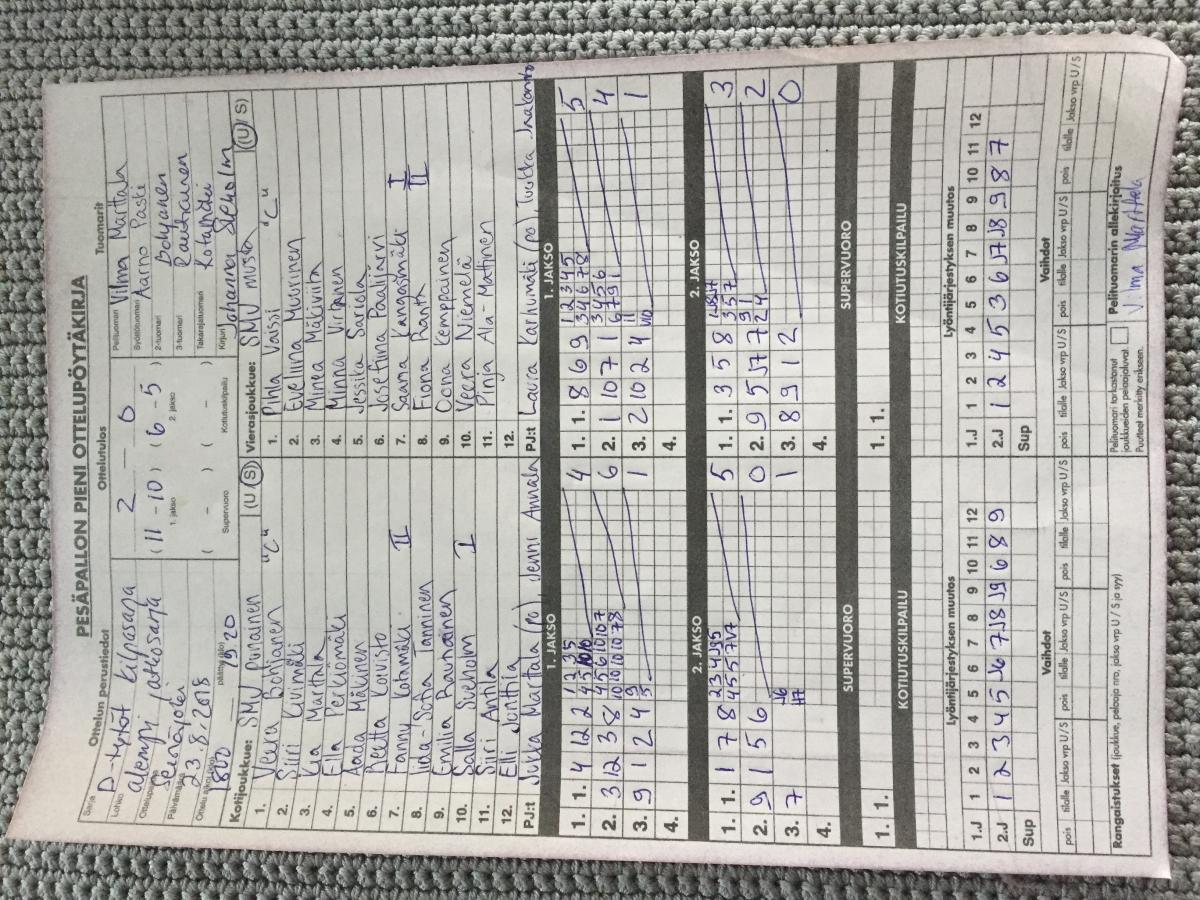 PESÄPALLON PIENI OTTELUPÖYTÄKIRJA
Ottelun perustiedot
Ottelutulos
Tuomarit
Sarja D-tytöt kilpasarja
Lohko alempi jatkosarja
Ottelupaikka Seinäjoki
Päivämäärä 23.8.2018
Ottelu alkoi (klo) 1800 päättyi (klo) 1920
2 – 0
(11 – 10) (6 – 5)
1. jakso 2. jakso
( – ) ( – )
Supervuoro Kotiutuskilpailu
Pelituomari Vilma Marttala
Syöttötuomari Aarno Paski
2-tuomari Bohjanen
3-tuomari Rautiainen
Takarajatuomari Kotamäki
Kirjuri Johanna Sieholm
Kotijoukkue: SMV punainen "C" (U / S)
1. Veera Bohjanen
2. Siiri Kuvinmäki
3. Kia Marttala
4. Ella Perkiömäki
5. Aada Mäkinen
6. Reetta Korvisto
7. Fanny Kotamäki II
8. Iida-Sofia Tanninen
9. Emilia Rautiainen
10. Salla Sieholm I
11. Siiri Antila
12. Elli Jonttia
PJ:t Jukka Marttala (po) Jenni Annala
Vierasjoukkue: SMV musta "C" (U / S)
1. Pihla Vaissi
2. Eveliina Muurinen
3. Minea Mäkiviita
4. Minna Virtanen
5. Jesika Sariola
6. Josefiina Paalijärvi
7. Saana Kangasmäki I
8. Fiona Ranta II
9. Oona Kemppainen
10. Veera Niemelä
11. Pinja Ala-Mattinen
12.
PJ:t Laura Karhumäki (po), Tuukka
1. JAKSO
1. 1. 4 12 2 4
2. 3 12 3 8 6
3. 9 1 2 4 1
4.
1. JAKSO
1. 1. 8 6 9 5
2. 1 10 7 1 4
3. 2 10 2 4 1
4.
2. JAKSO
1. 1. 1 7 8 5
2. 9 1 5 6 0
3. 7 1
4.
2. JAKSO
1. 1. 3 5 8 3
2. 9 5 J7 7 2
3. 8 9 1 2 0
4.
SUPERVUORO
1. 1.
SUPERVUORO
1. 1.
KOTIUTUSKILPAILU
KOTIUTUSKILPAILU
Lyöntijärjestyksen muutos
1.J 1 2 3 4 5 6 7 8 9 10 11 12
2.J 1 2 3 4 5 J6 7 J8 J9 6 8 9
Sup
Lyöntijärjestyksen muutos
1.J 1 2 3 4 5 6 7 8 9 10 11 12
2.J 1 2 4 5 3 6 J7 J8 9 8 7
Sup
Vaihdot
pois tilalle Jakso vrp U / S pois tilalle Jakso vrp U / S pois tilalle Jakso vrp U / S
Vaihdot
pois tilalle Jakso vrp U / S pois tilalle Jakso vrp U / S pois tilalle Jakso vrp U / S
Rangaistukset (joukkue, pelaaja nro, jakso vrp U / S ja syy)
Pelituomari tarkastanut
joukkueiden pelaajaluvat.
Puutteet merkitty erikseen.
Pelituomarin allekirjoitus
Vilma Marttala